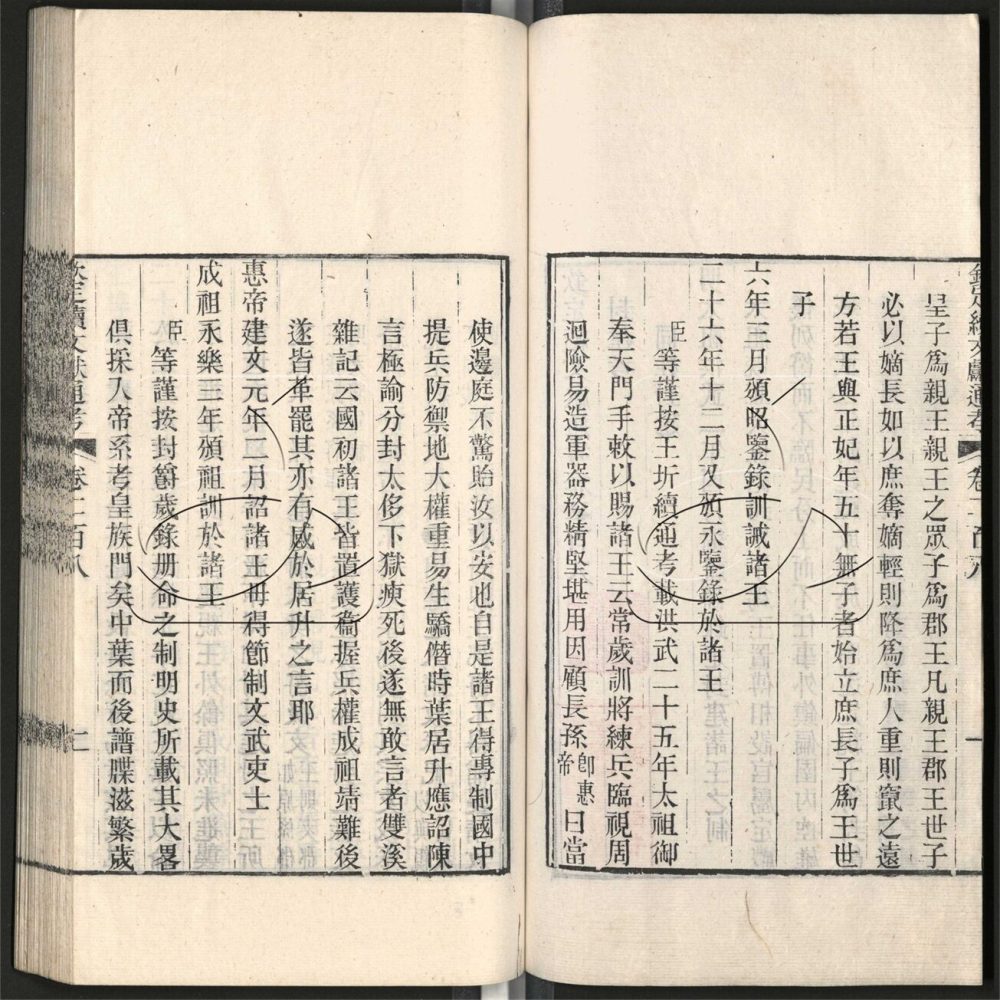 皇子爲親王親王之眾子爲郡王凡親王郡王世子
必以嫡長如以庶奪嫡輕則降爲庶人重則竄之遠
方若王與正妃年五十無子者始立庶長子爲王世
子
六年三月頒昭鑒錄訓誡諸王
二十六年十二月又頒永鑒錄於諸王
臣等謹按王圻續通考載洪武二十五年太祖御
奉天門手敕以賜諸王云常歲訓將練兵臨視周
迴險易造軍器務精堅堪用因顧長孫卽惠帝曰當
欽定續文獻通考 卷二百八 二
使邊庭不驚貽汝以安也自是諸王得專制國中
提兵防禦地大權重易生驕僭時葉居升應詔陳
言極諭分封太侈下獄瘐死後遂無敢言者雙溪
雜記云國初諸王皆置護衞握兵權成祖靖難後
遂皆革罷其亦有感於居升之言耶
惠帝建文元年二月詔諸王毋得節制文武吏士
成祖永樂三年頒祖訓於諸王
臣等謹按封爵歲錄册命之制明史所載其大畧
俱採入帝系考皇族門矣中葉而後譜牒滋繁歲